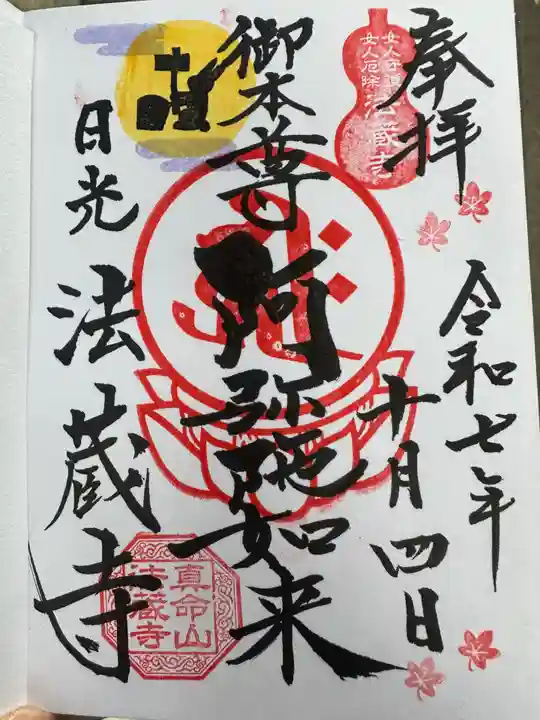 奉拝
女人守護
女人厄除
法蔵寺
令和七年
十月四日
御本尊
阿弥陀如来
日光
法蔵寺
真命山
法蔵寺